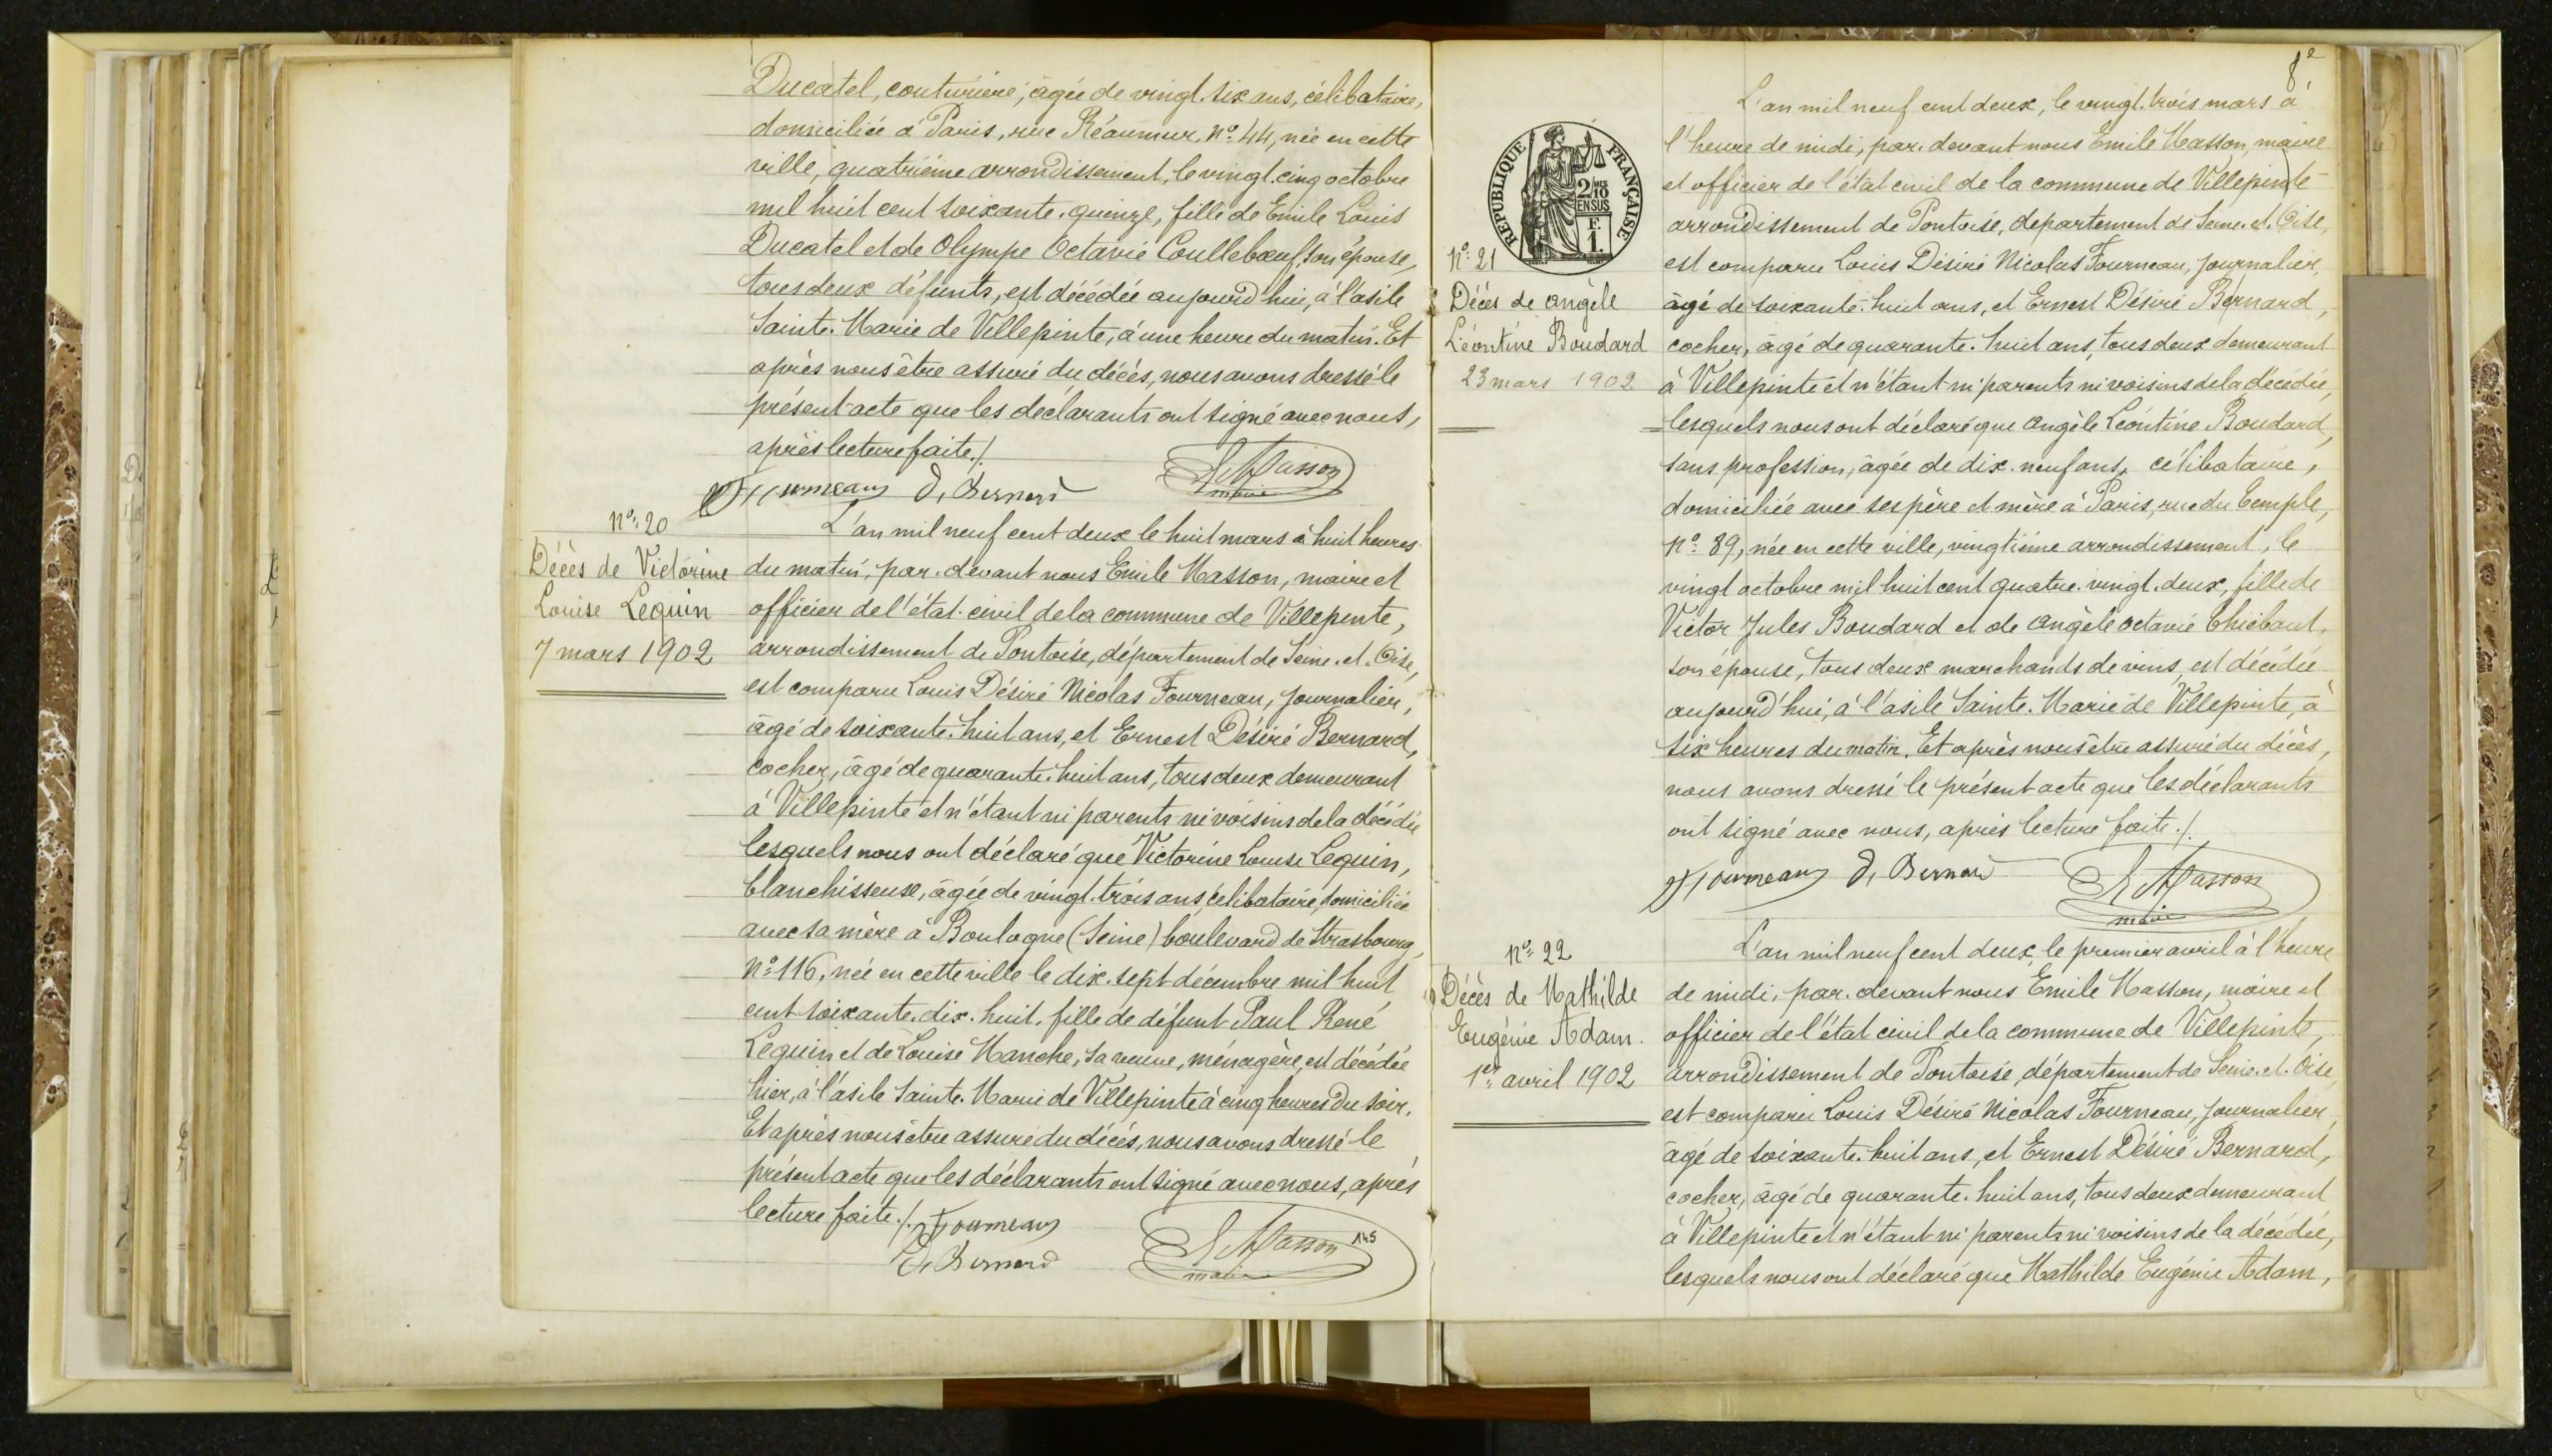 Ducatel, couturière, âgée de vingt-six ans, célibataire,
domiciliée à Paris, rue Réaumur, N° 44, née en cette
ville, quatrième arrondissement, le vingt-cinq octobre
mil huit cent soixante-quinze, fille de Emile Louis
Ducatel et de Olympe Octavie Coullebœuf, son épouse,
tous deux défunts, est décédée aujourd'hui, à l'asile
Sainte-Marie de Villepinte, à une heure du matin. Et
après nous être assuré du décès, nous avons dressé le
présent acte que les déclarants ont signé avec nous,
après lecture faite./.
Fourneau D, Bernard E. Masson
maire
N° 20
Décès de Victorine
Louise Lequin
7 mars 1902
L'an mil neuf cent deux le huit mars à huit heures
du matin, par-devant nous Emile Masson, maire et
officier de l'état-civil de la commune de Villepinte,
arrondissement de Pontoise, département de Seine-et-Oise,
est comparu Louis Désiré Nicolas Fourneau, journalier,
âgé de soixante-huit ans, et Ernest Désiré Bernard,
cocher, âgé de quarante-huit ans, tous deux demeurant
à Villepinte et n'étant ni parents ni voisins de la décédée
lesquels nous ont déclaré que Victorine Louise Lequin,
blanchisseuse, âgée de vingt-trois ans, célibataire, domiciliée
avec sa mère à Boulogne (Seine) boulevard de Strasbourg,
N° 116, née en cette ville le dix-sept décembre mil huit
cent soixante-dix-huit, fille de défunt Paul René
Lequin et de Louise Manche, sa veuve, ménagère, est décédée
hier, à l'asile Sainte-Marie de Villepinte à cinq heures du soir.
Et après nous être assuré du décès, nous avons dressé le
présent acte que les déclarants ont signé avec nous, après
lecture faite./. Fourneau
D, Bernard E. Masson 145
maire
8e
REPUBLIQUE FRANÇAISE
2/10 EN SUS
F. 1.
N° 21
Décès de Angèle
Léontine Boudard
23 mars 1902
L'an mil neuf cent deux, le vingt-trois mars à
l'heure de midi, par-devant nous Emile Masson, maire
et officier de l'état civil de la commune de Villepinte
arrondissement de Pontoise, département de Seine-et-Oise,
est comparu Louis Désiré Nicolas Fourneau, journalier,
âgé de soixante-huit ans, et Ernest Désiré Bernard,
cocher, âgé de quarante-huit ans, tous deux demeurant
à Villepinte et n'étant ni parents ni voisins de la décédée,
lesquels nous ont déclaré que Angèle Léontine Boudard,
sans profession, âgée de dix-neuf ans, célibataire,
domiciliée avec ses père et mère à Paris, rue du Temple,
N° 89, née en cette ville, vingtième arrondissement, le
vingt octobre mil huit cent quatre-vingt-deux, fille de
Victor Jules Boudard et de Angèle Octavie Thiébaut,
son épouse, tous deux marchands de vins, est décédée
aujourd'hui, à l'asile Sainte-Marie de Villepinte, à
six heures du matin. Et après nous être assuré du décès,
nous avons dressé le présent acte que les déclarants
ont signé avec nous, après lecture faite./.
Fourneau D, Bernard E. Masson
maire
N° 22
Décès de Mathilde
Eugénie Adam.
1er avril 1902
L'an mil neuf cent deux, le premier avril à l'heure
de midi, par-devant nous Emile Masson, maire et
officier de l'état civil de la commune de Villepinte,
arrondissement de Pontoise, département de Seine-et-Oise,
est comparu Louis Désiré Nicolas Fourneau, journalier,
âgé de soixante-huit ans, et Ernest Désiré Bernard,
cocher, âgé de quarante-huit ans, tous deux demeurant
à Villepinte et n'étant ni parents ni voisins de la décédée,
lesquels nous ont déclaré que Mathilde Eugénie Adam,